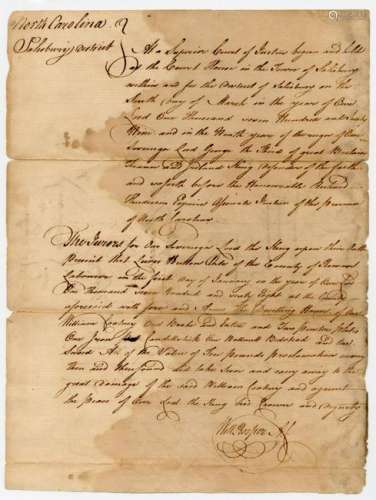 North Carolina
Salisbury District
At a Superior Court of Justice began and held
at the Court House in the Town of Salisbury
within and for the District of Salisbury on the
day of March in the year of Our
Lord One Thousand seven Hundred and
Nine and in the Ninth year of the reign of Our
Sovereign Lord George the Third of great Brittain
France and Ireland King Defender of the faith
and so forth before the Honourable Richard
Henderson Esquire Associate Justice of the province
of North Carolina
The Jurors for Our Sovereign Lord the King upon their Oath
Present that late of the County of Rowan
Labourer on the first day of January in the year of Our Lord
One Thousand Seven Hundred and Sixty Eight at the County
aforesaid with force and Arms the Dwelling House of
William One and Two
One Iron Candlestick One Bedstead and One
Sword All of the Value of Ten pounds Proclamation money
then and there found did take Steal and carry away to the
great Damage of the said William and against
the Peace of Our Lord the King his Crown and Dignity